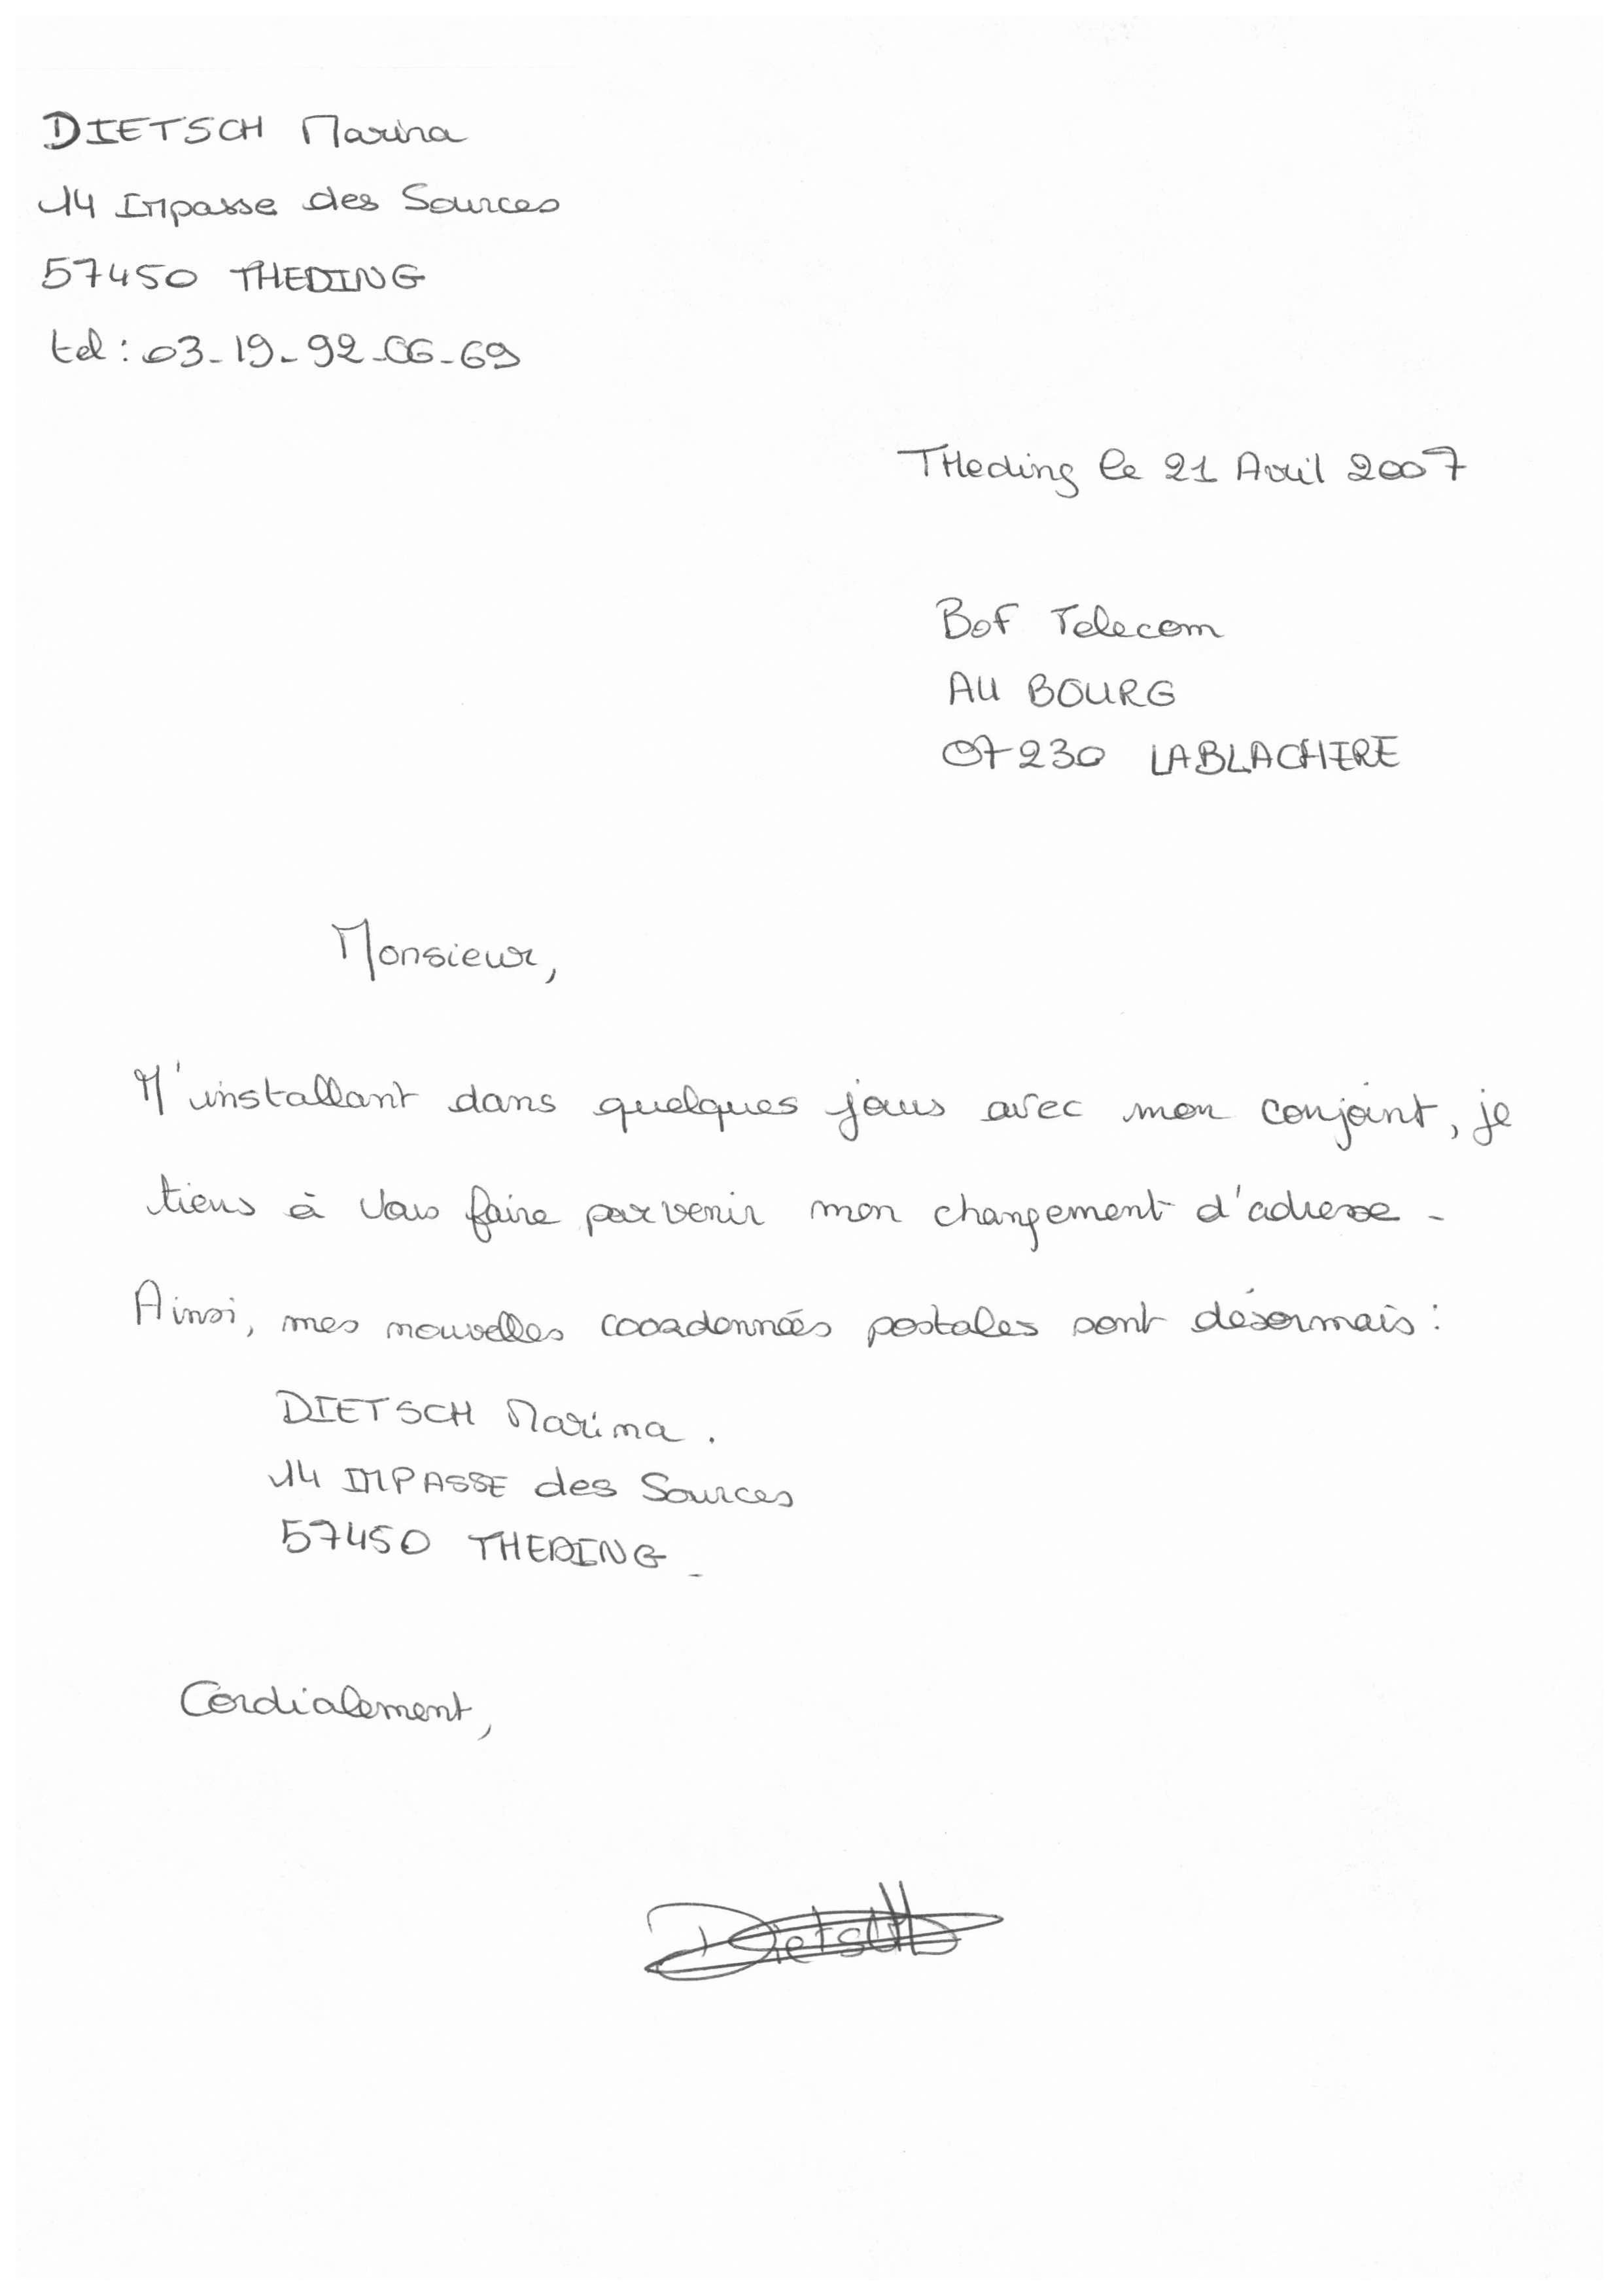 DIETSCH Marina
14 Impasse des Sources
57450 THEDING
tel : 03-19-92-06-69
THeding le 21 Avril 2007
BOF Telecom
AU BOURG
07230 LABLACHERE
Monsieur,
M'installant dans quelques jours avec mon conjoint, je
tiens à vous faire parvenir mon changement d'adresse -
Ainsi, mes nouvelles coordonnées postales sont désormais :
DIETSCH Marina .
14 IMPASSE des Sources
57450 THEDING -
Cordialement,
Dietsch